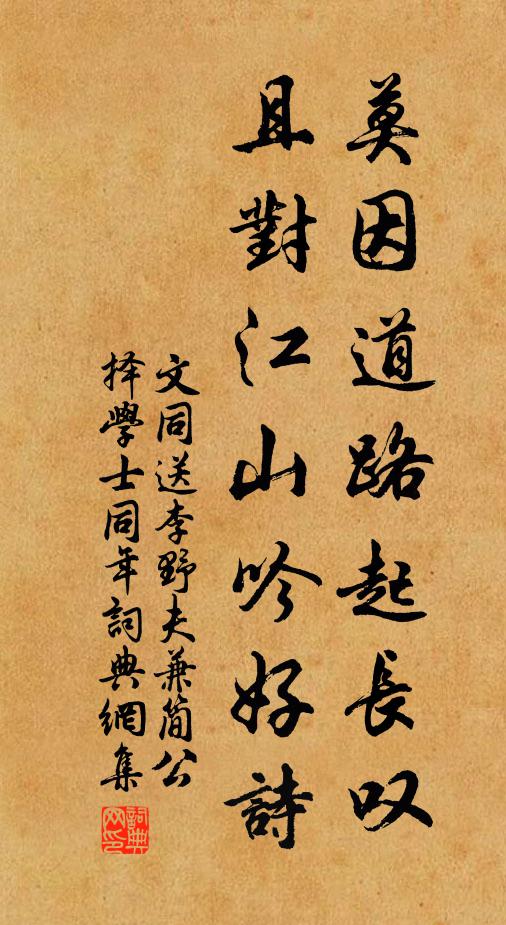 莫因道路起長叹
且對江山吟好詩
文同送李野夫兼簡公
择學士同年詞典網集
詞典
网印